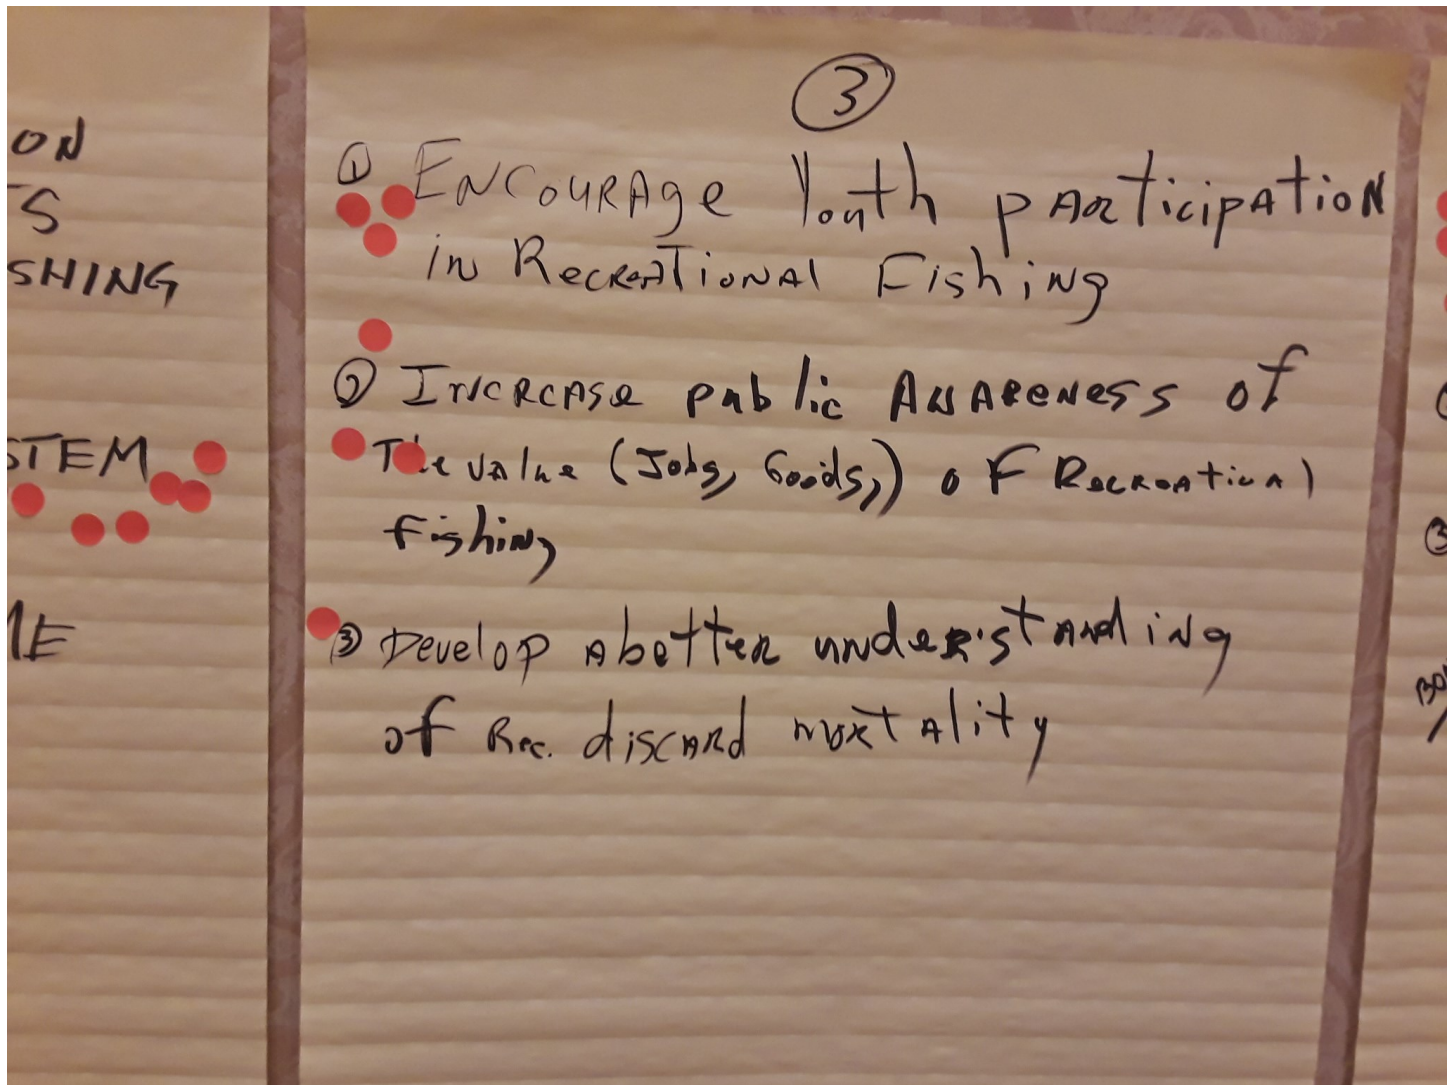 ON
TS
SHING
STEM
ME
③
① ENCOURAGE Youth pARticipAtioN
iN RecreATioNAl Fishing
② INCREASe public AWAReNess of
The value (Jobs, Goods,) oF RecReAtional
fishing
③ Develop A better understANding
of Rec. discARd mortAlity
③